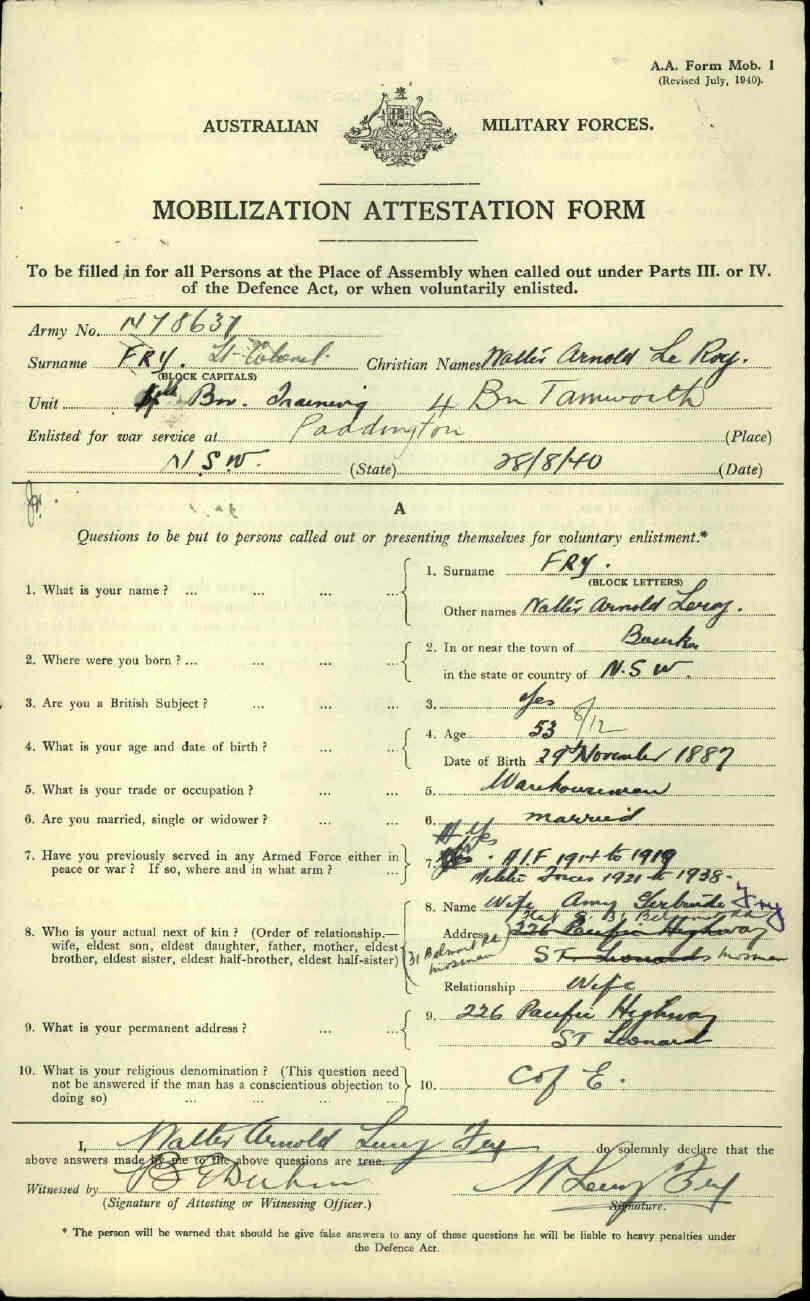 A.A. Form Mob. 1
(Revised July, 1940).
AUSTRALIAN MILITARY FORCES.
MOBILIZATION ATTESTATION FORM
To be filled in for all Persons at the Place of Assembly when called out under Parts III. or IV.
of the Defence Act, or when voluntarily enlisted.
Army No. N78637
Surname FRY. Lt-Colonel. Christian Names Walter Arnold Le Roy.
(BLOCK CAPITALS)
Unit Bn. Training 4 Bn Tamworth
Enlisted for war service at Paddington (Place)
N S W. (State) 28/8/40 (Date)
A
Questions to be put to persons called out or presenting themselves for voluntary enlistment.*
1. What is your name? ... ... ... ... 1. Surname FRY.
(BLOCK LETTERS)
Other names Walter Arnold Leroy.
2. Where were you born? ... ... ... ... 2. In or near the town of Bourke
in the state or country of N.S.W.
3. Are you a British Subject? ... ... ... 3. Yes
4. What is your age and date of birth? ... ... 4. Age 53 8/12
Date of Birth 29th November 1887
5. What is your trade or occupation? ... ... 5. Warehouseman
6. Are you married, single or widower? ... ... 6. married
7. Have you previously served in any Armed Force either in
peace or war? If so, where and in what arm? ...
7. Yes A.I.F 1914 to 1919
Militia Forces 1921 to 1938-
8. Who is your actual next of kin? (Order of relationship.—
wife, eldest son, eldest daughter, father, mother, eldest
brother, eldest sister, eldest half-brother, eldest half-sister)
8. Name Wife Amy Gertrude Fry
Address 226 Pacific Highway
31 Belmont Rd Mosman
ST Leonards Mosman
Relationship Wife
9. What is your permanent address? ... ... 9. 226 Pacific Highway
ST Leonard
10. What is your religious denomination? (This question need
not be answered if the man has a conscientious objection to
doing so) ... ... ... ...
10. C of E.
I, Walter Arnold Leroy Fry do solemnly declare that the
above answers made by me to the above questions are true.
Witnessed by
W Leroy Fry
(Signature of Attesting or Witnessing Officer.) Signature.
* The person will be warned that should he give false answers to any of these questions he will be liable to heavy penalties under
the Defence Act.